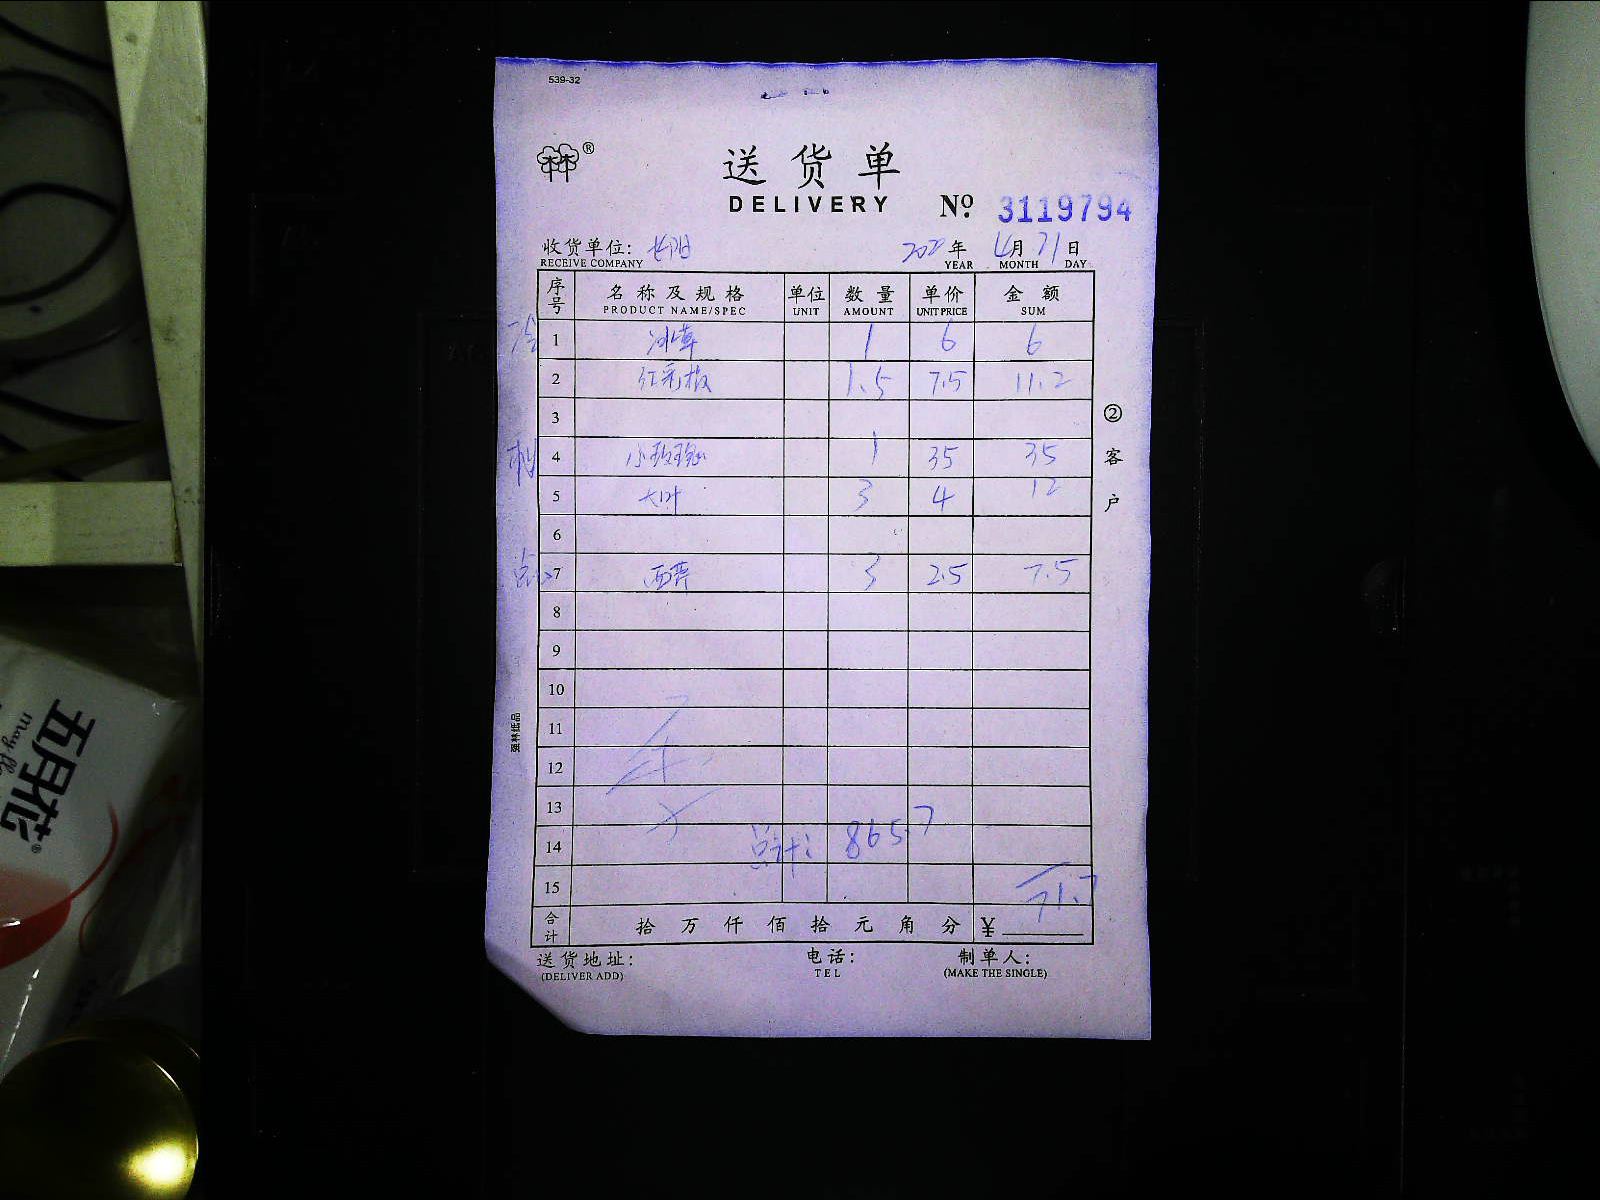 539-32
®
送货单
DELIVERY № 3119794
收货单位: 年 4月 21日
RECEIVE COMPANY YEAR MONTH DAY
序号 名称及规格 单位 数量 单价 金额
PRODUCT NAME/SPEC UNIT AMOUNT UNIT PRICE SUM
冷 1 冰草 1 6 6
2 红彩椒 1.5 7.5 11.2
3
4 小玫瑰 1 35 35
5 大叶 3 4 12
6
点心 7 西芹 3 2.5 7.5
8
9
10
11
12
13
14 总计: 865.7
15 71.7
合计 拾 万 仟 佰 拾 元 角 分 ¥
送货地址: 电话: 制单人:
(DELIVER ADD) TEL (MAKE THE SINGLE)
②客户
强林纸品
五月花
may
®